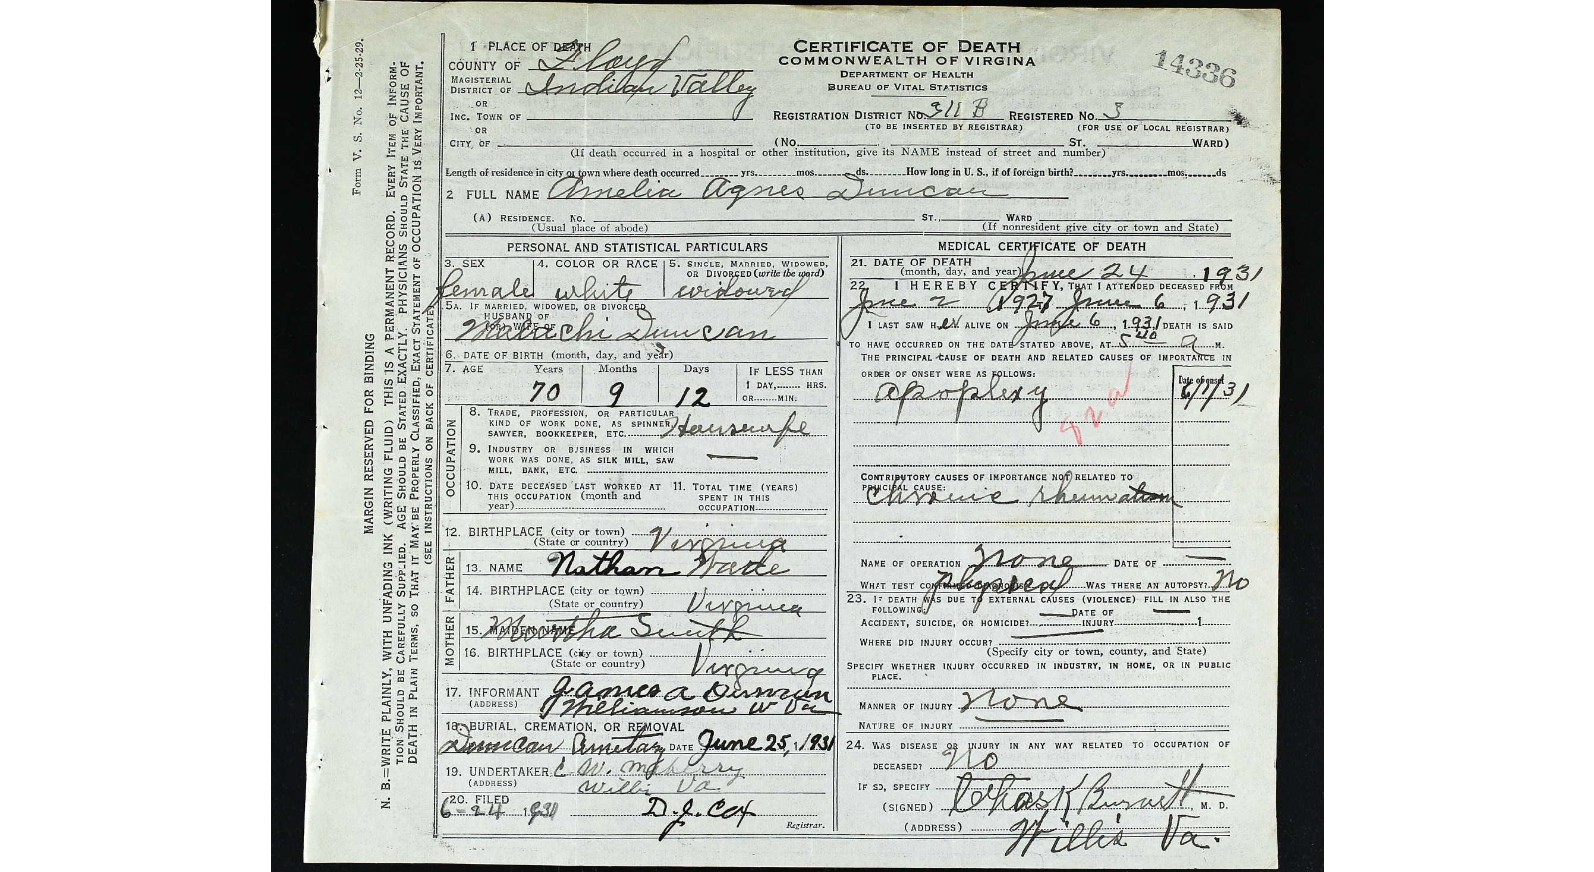 1 PLACE OF DEATH
COUNTY OF Floyd
MAGISTERIAL DISTRICT OF Indian Valley
OR
INC. TOWN OF
OR
CITY OF
CERTIFICATE OF DEATH
COMMONWEALTH OF VIRGINIA
DEPARTMENT OF HEALTH
BUREAU OF VITAL STATISTICS
14336
REGISTRATION DISTRICT No. 311 B REGISTERED No. 3
(TO BE INSERTED BY REGISTRAR) (FOR USE OF LOCAL REGISTRAR)
(No. ST. WARD)
(If death occurred in a hospital or other institution, give its NAME instead of street and number)
Length of residence in city or town where death occurred yrs. mos. ds. How long in U. S., if of foreign birth? yrs. mos. ds
2 FULL NAME Amelia Agnes Duncan
(A) RESIDENCE. No. ST., WARD
(Usual place of abode) (If nonresident give city or town and State)
PERSONAL AND STATISTICAL PARTICULARS
3. SEX 4. COLOR OR RACE 5. SINGLE, MARRIED, WIDOWED,
OR DIVORCED (write the word)
female white widowed
5A. IF MARRIED, WIDOWED, OR DIVORCED
HUSBAND OF
(OR) WIFE OF Malachi Duncan
6. DATE OF BIRTH (month, day, and year)
7. AGE Years Months Days IF LESS THAN
1 DAY, HRS.
OR MIN.
70 9 12
OCCUPATION
8. TRADE, PROFESSION, OR PARTICULAR
KIND OF WORK DONE, AS SPINNER,
SAWYER, BOOKKEEPER, ETC. Housewife
9. INDUSTRY OR BUSINESS IN WHICH
WORK WAS DONE, AS SILK MILL, SAW
MILL, BANK, ETC.
10. DATE DECEASED LAST WORKED AT
THIS OCCUPATION (month and
year)
11. TOTAL TIME (YEARS)
SPENT IN THIS
OCCUPATION
12. BIRTHPLACE (city or town)
(State or country) Virginia
FATHER
13. NAME Nathan
14. BIRTHPLACE (city or town)
(State or country) Virginia
MOTHER
15. MAIDEN NAME Martha Smith
16. BIRTHPLACE (city or town)
(State or country) Virginia
17. INFORMANT James A Duncan
(ADDRESS) Williamson W Va
18. BURIAL, CREMATION, OR REMOVAL
Duncan Cemetary DATE June 25, 1931
19. UNDERTAKER C W. Mabery
(ADDRESS) Willis Va.
20. FILED
6-24 1931 D. J. Cox
Registrar.
MEDICAL CERTIFICATE OF DEATH
21. DATE OF DEATH
(month, day, and year) June 24 1931
22. I HEREBY CERTIFY, THAT I ATTENDED DECEASED FROM
June 2 1927 June 6, 1931
I LAST SAW HER ALIVE ON June 6, 1931 DEATH IS SAID
TO HAVE OCCURRED ON THE DATE STATED ABOVE, AT 5 40 a M.
THE PRINCIPAL CAUSE OF DEATH AND RELATED CAUSES OF IMPORTANCE IN
ORDER OF ONSET WERE AS FOLLOWS:
Date of onset
apoplexy 6/1/31
82a
CONTRIBUTORY CAUSES OF IMPORTANCE NOT RELATED TO
PRINCIPAL CAUSE:
Chronic rheumatism
NAME OF OPERATION None DATE OF
WHAT TEST CONFIRMED DIAGNOSIS? Physical WAS THERE AN AUTOPSY? No
23. IF DEATH WAS DUE TO EXTERNAL CAUSES (VIOLENCE) FILL IN ALSO THE
FOLLOWING:
ACCIDENT, SUICIDE, OR HOMICIDE? DATE OF INJURY 1
WHERE DID INJURY OCCUR?
(Specify city or town, county, and State)
SPECIFY WHETHER INJURY OCCURRED IN INDUSTRY, IN HOME, OR IN PUBLIC
PLACE.
MANNER OF INJURY None
NATURE OF INJURY
24. WAS DISEASE OR INJURY IN ANY WAY RELATED TO OCCUPATION OF
DECEASED? No
IF SO, SPECIFY
(SIGNED) Chas K Burnett, M. D.
(ADDRESS) Willis Va.
Form V. S. No. 12—2-25-29.
MARGIN RESERVED FOR BINDING
N. B.—WRITE PLAINLY, WITH UNFADING INK (WRITING FLUID) THIS IS A PERMANENT RECORD. EVERY ITEM OF INFORM-
TION SHOULD BE CAREFULLY SUPPLIED. AGE SHOULD BE STATED EXACTLY. PHYSICIANS SHOULD STATE THE CAUSE OF
DEATH IN PLAIN TERMS, SO THAT IT MAY BE PROPERLY CLASSIFIED. EXACT STATEMENT OF OCCUPATION IS VERY IMPORTANT.
(SEE INSTRUCTIONS ON BACK OF CERTIFICATE)